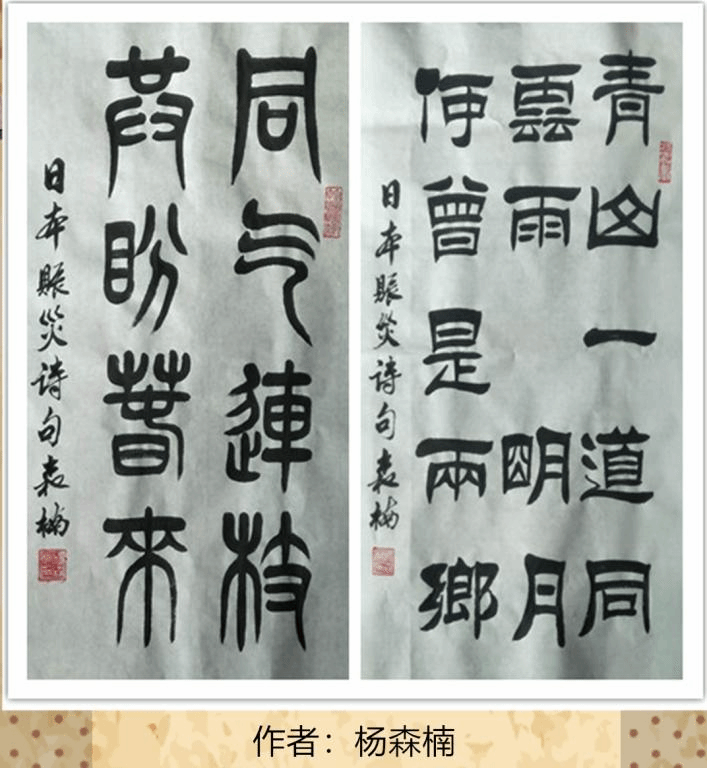 同气連枝
共盼萅來
日本賑災诗句森楠
青山一道同
雲雨明月
何曾是兩鄉
日本賑災诗句森楠
作者：杨森楠